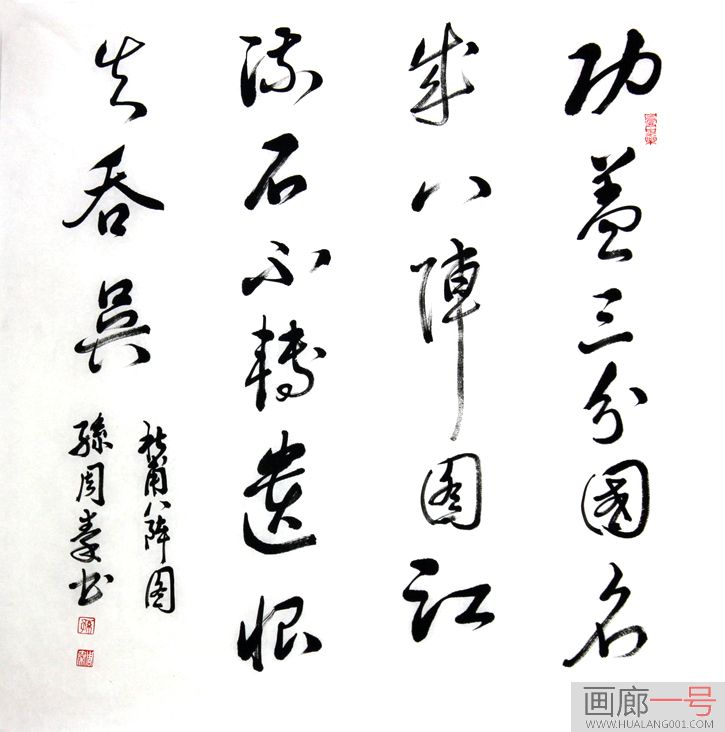 功盖三分國名
成八陣图江
流石不轉遗恨
失吞吴
杜甫八阵图
孫周 书
画廊一号
WWW.HUALANG001.COM